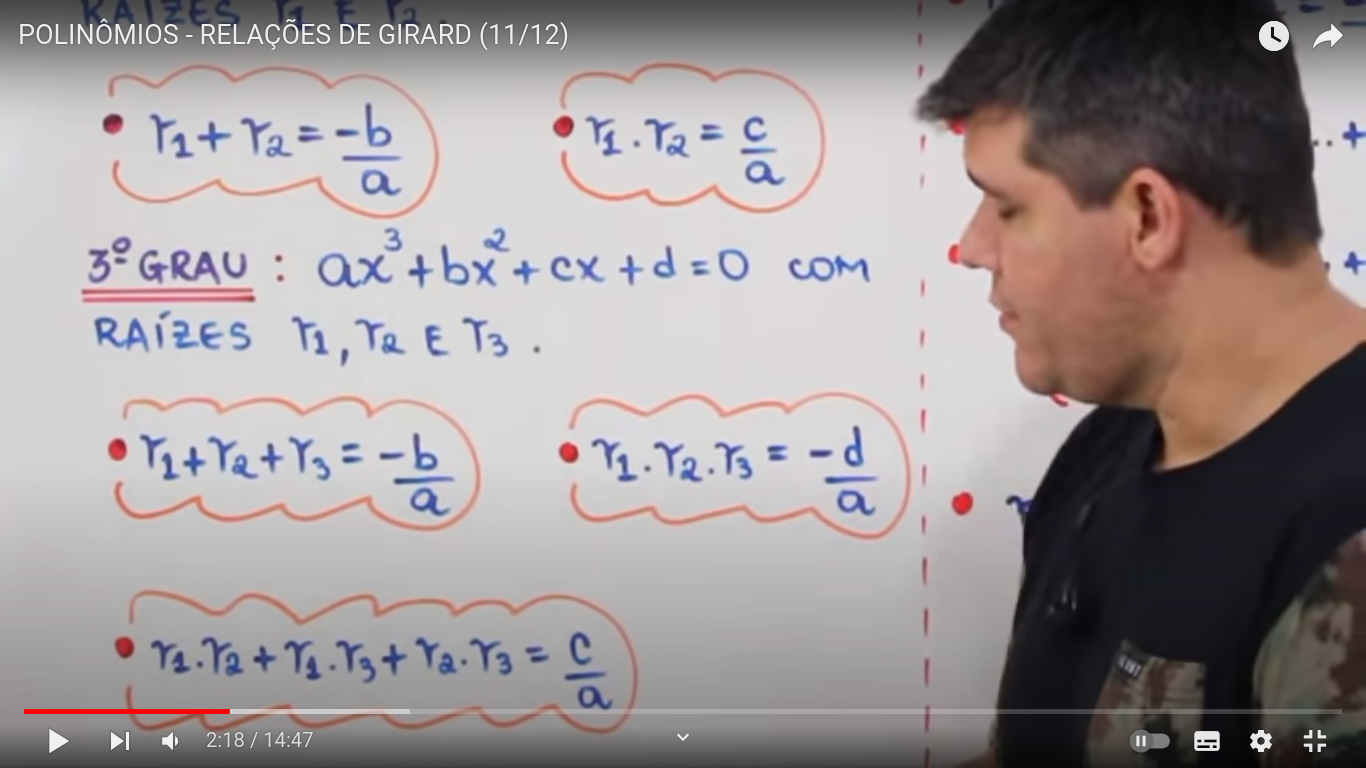 RAÍZES r1 E r2.
POLINÔMIOS - RELAÇÕES DE GIRARD (11/12)
r1 + r2 = -b/a
r1 . r2 = c/a
3º GRAU : ax³ + bx² + cx + d = 0 COM
RAÍZES r1, r2 E r3 .
r1 + r2 + r3 = -b/a
r1 . r2 . r3 = -d/a
r1 . r2 + r1 . r3 + r2 . r3 = c/a
2:18 / 14:47